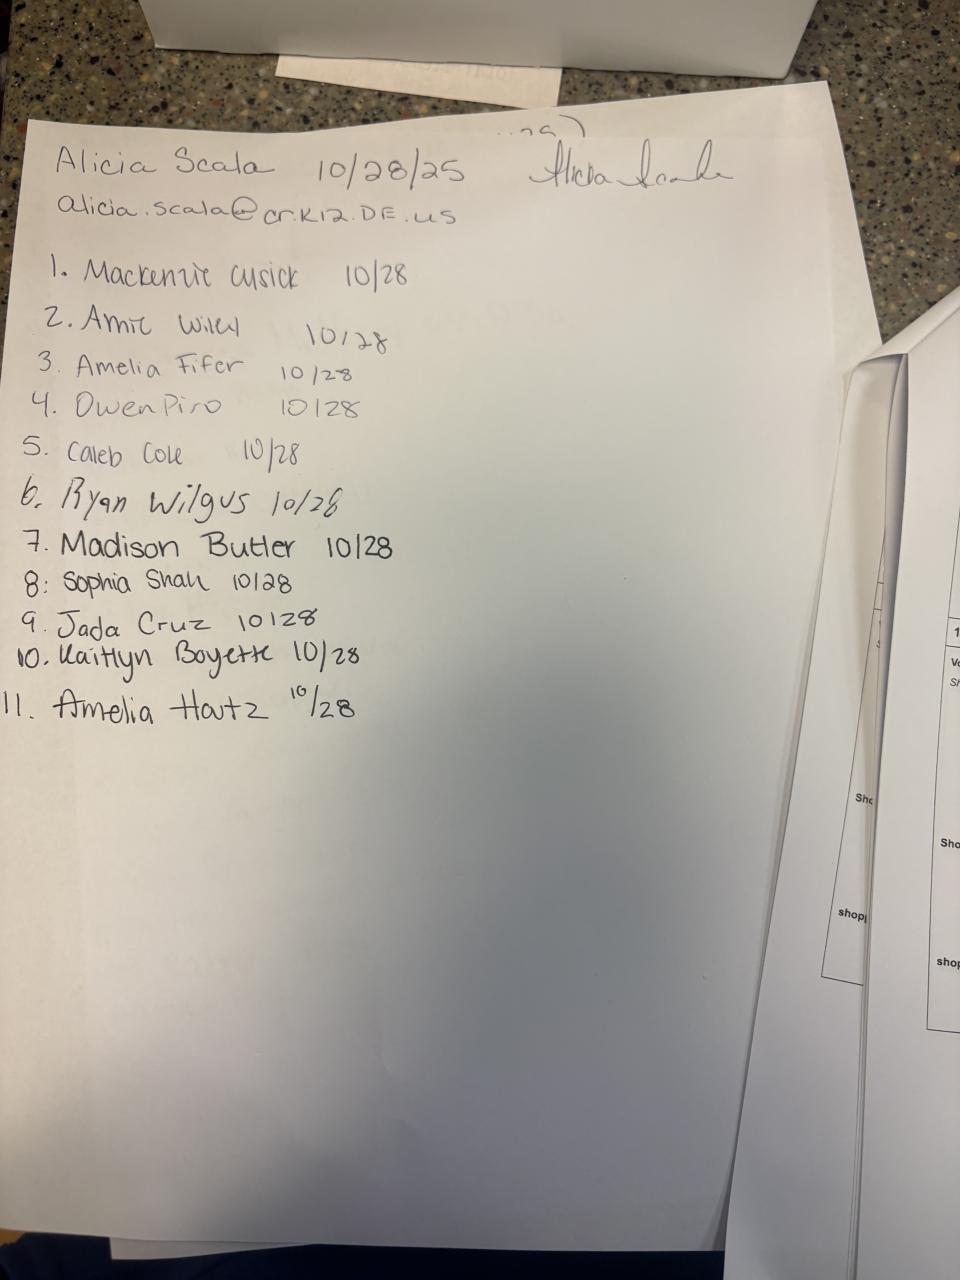 Alicia Scala 10/28/25 Alicia Scala
alicia.scala@cr.K12.DE.us
1. Mackenzie Cusick 10/28
2. Amie Wiley 10/28
3. Amelia Fifer 10/28
4. Owen Piro 10/28
5. Caleb Cole 10/28
6. Ryan Wilgus 10/28
7. Madison Butler 10/28
8: Sophia Shah 10/28
9. Jada Cruz 10/28
10. Kaitlyn Boyette 10/28
11. Amelia Hatz 10/28
1
Sho
shop
Sho
shop